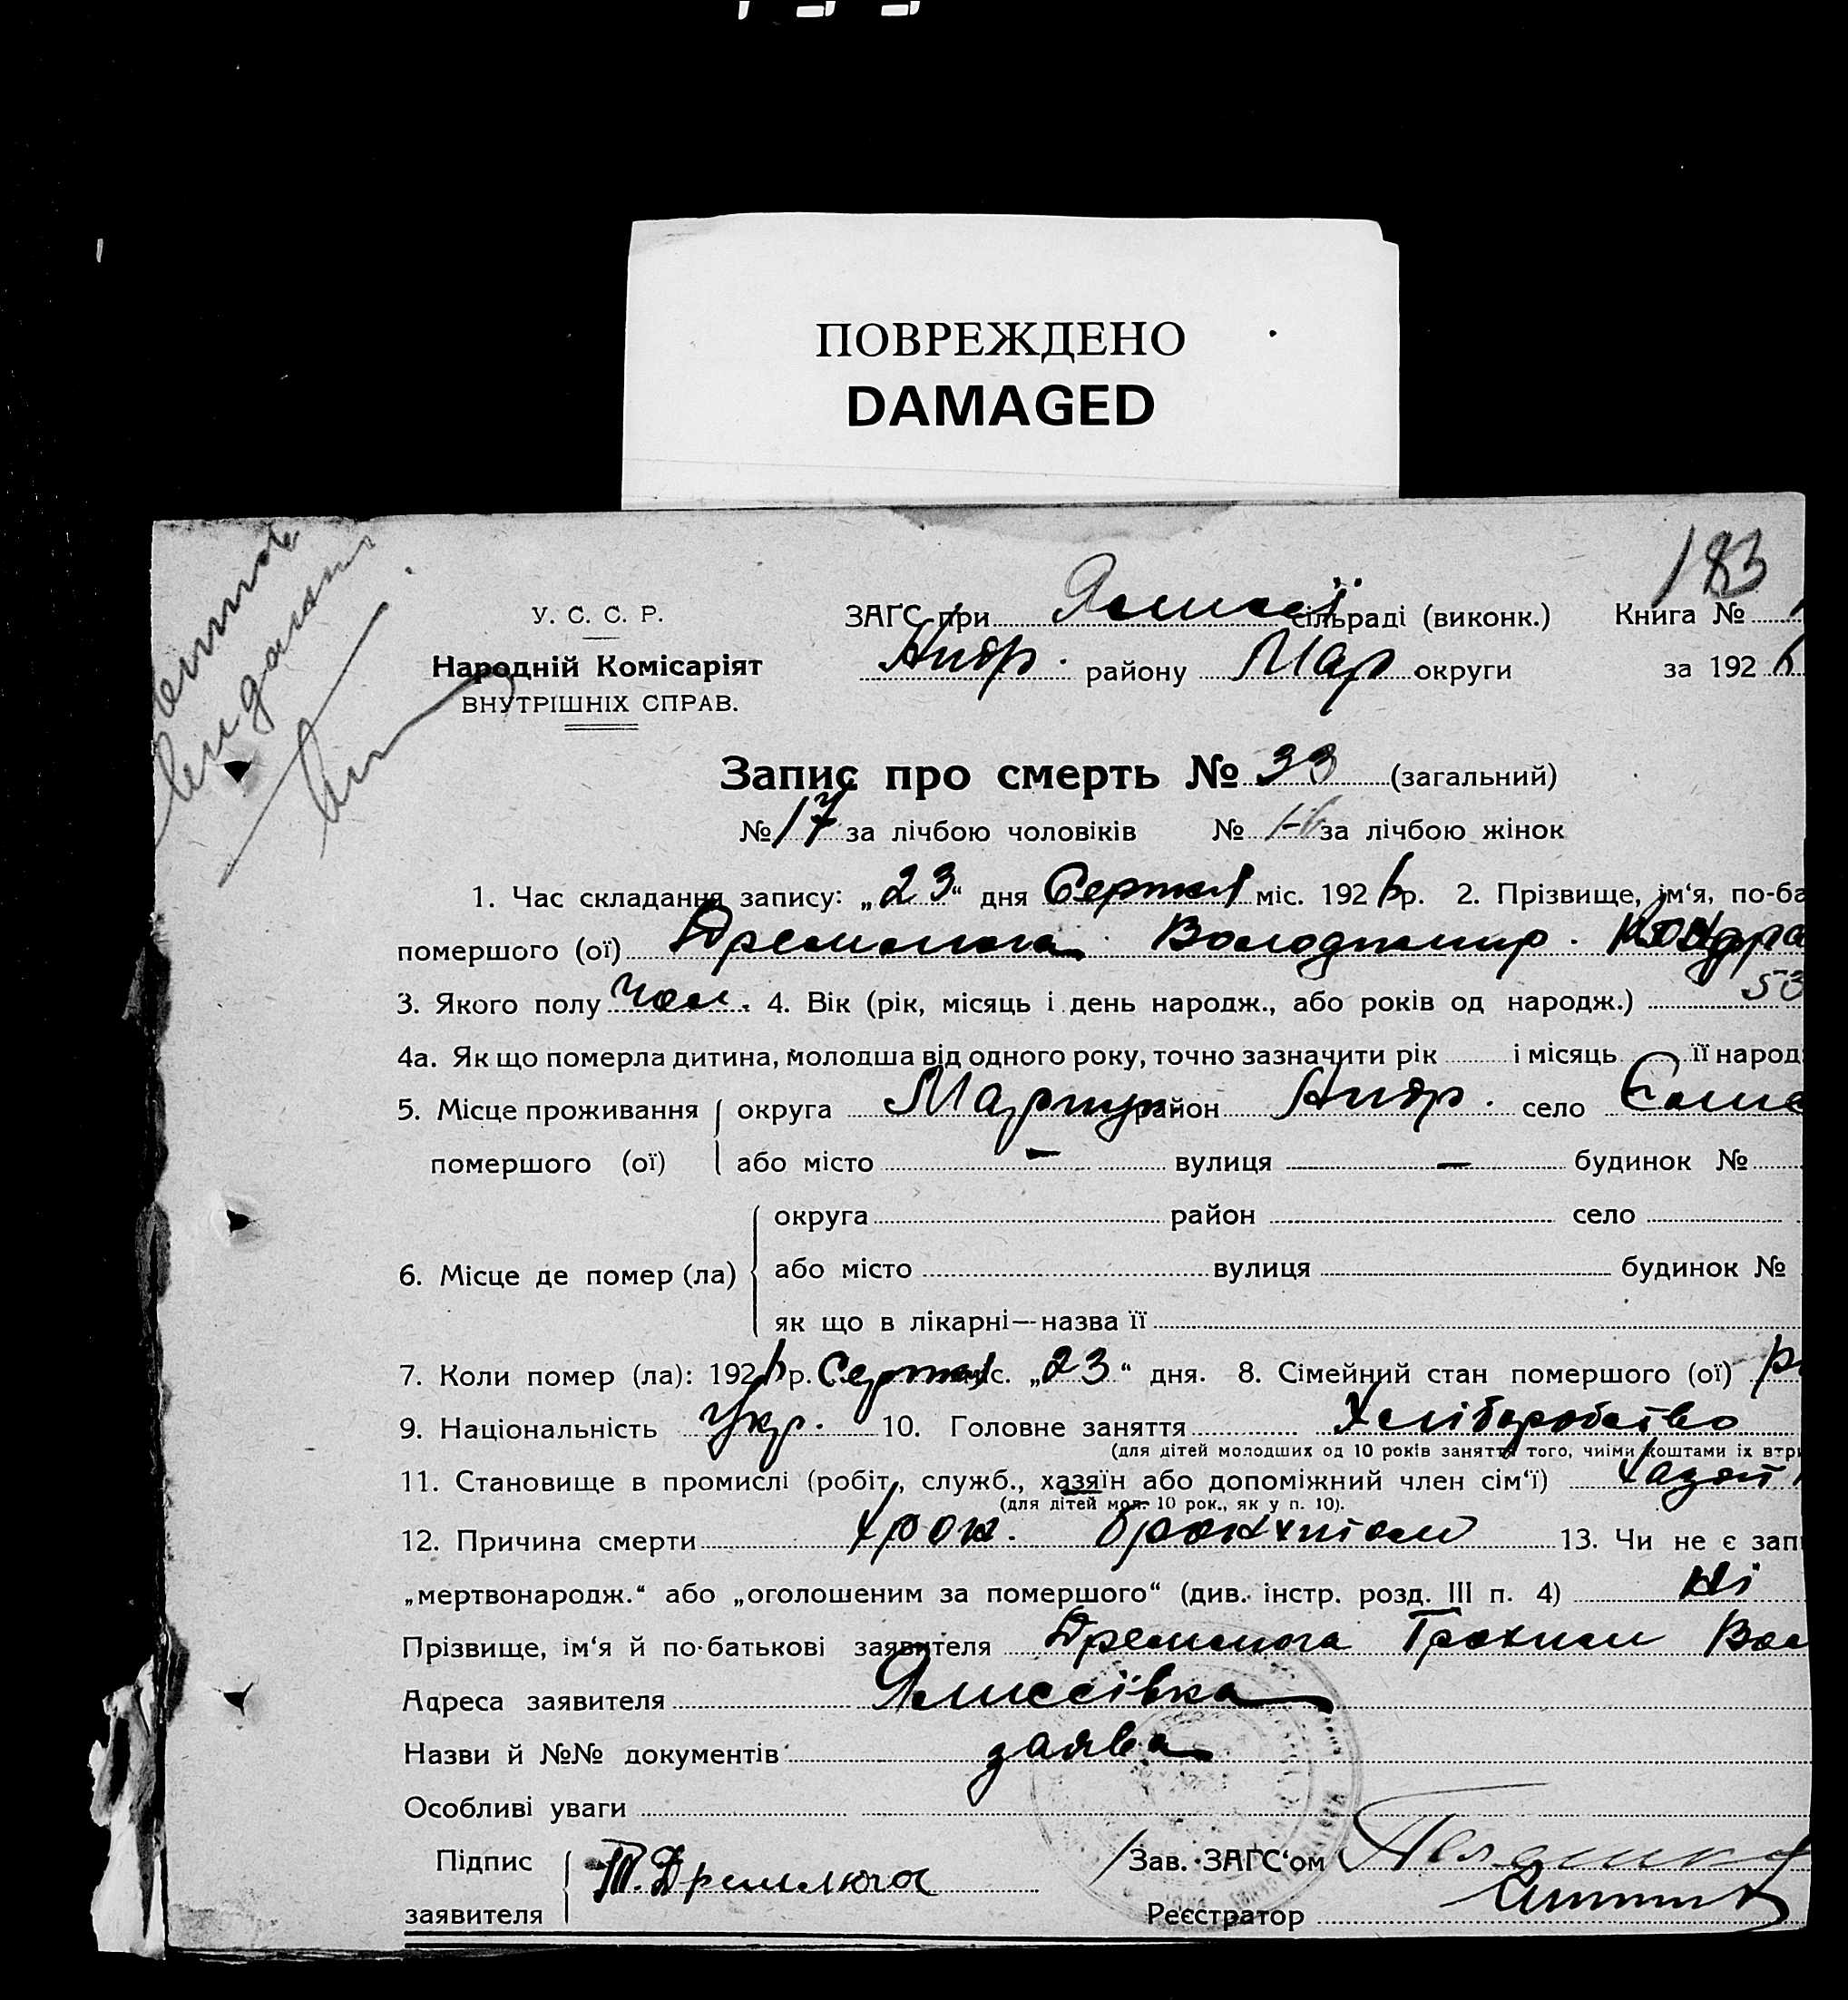 ПОВРЕЖДЕНО
DAMAGED
183
У. С. С. Р.
Народній Комісаріят
ВНУТРІШНІХ СПРАВ.
ЗАГС при сільраді (виконк.) Книга №
Андр. району Мар округи за 1926
Запис про смерть № 33 (загальний)
№ 17 за лічбою чоловіків № за лічбою жінок
1. Час складання запису: „23“ дня Серпня міс. 1926 р. 2. Прізвище, ім‘я, по-ба
помершого (ої) Дремлюга Володимир Кондра
3. Якого полу чол. 4. Вік (рік, місяць і день народж., або років од народж.) 53
4а. Як що померла дитина, молодша від одного року, точно зазначити рік і місяць її народ
5. Місце проживання округа Маріуп район Андр. село
помершого (ої) або місто — вулиця — будинок №
округа район село
6. Місце де помер (ла) або місто вулиця будинок №
як що в лікарні—назва її
7. Коли помер (ла): 1926 р. Серпня міс. „23“ дня. 8. Сімейний стан помершого (ої)
9. Національність Укр. 10. Головне заняття Хліборобство
(для дітей молодших од 10 років заняття того, чиїми коштами їх втри
11. Становище в промислі (робіт., служб., хазяїн або допоміжний член сім‘ї) Хазяїн
(для дітей мол. 10 рок., як у п. 10).
12. Причина смерти Хрон. бронхитом 13. Чи не є зап
„мертвонародж.“ або „оголошеним за помершого“ (див. інстр. розд. III п. 4) Ні
Прізвище, ім‘я й по-батькові заявителя Дремлюга Трохим Вол
Адреса заявителя
Назви й №№ документів заява
Особливі уваги
Підпис заявителя Т. Дремлюга
Зав. ЗАГС‘ом
Реєстратор